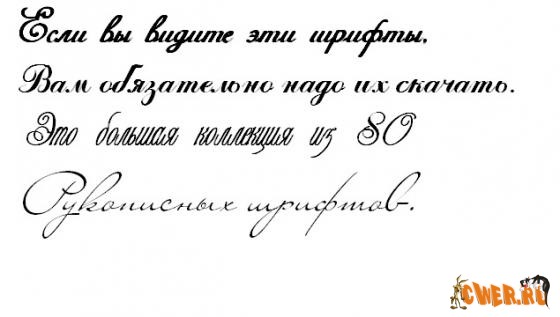 Если вы видите эти шрифты,
Вам обязательно надо их скачать.
Это большая коллекция из 80
Рукописных шрифтов.
CWER.RU